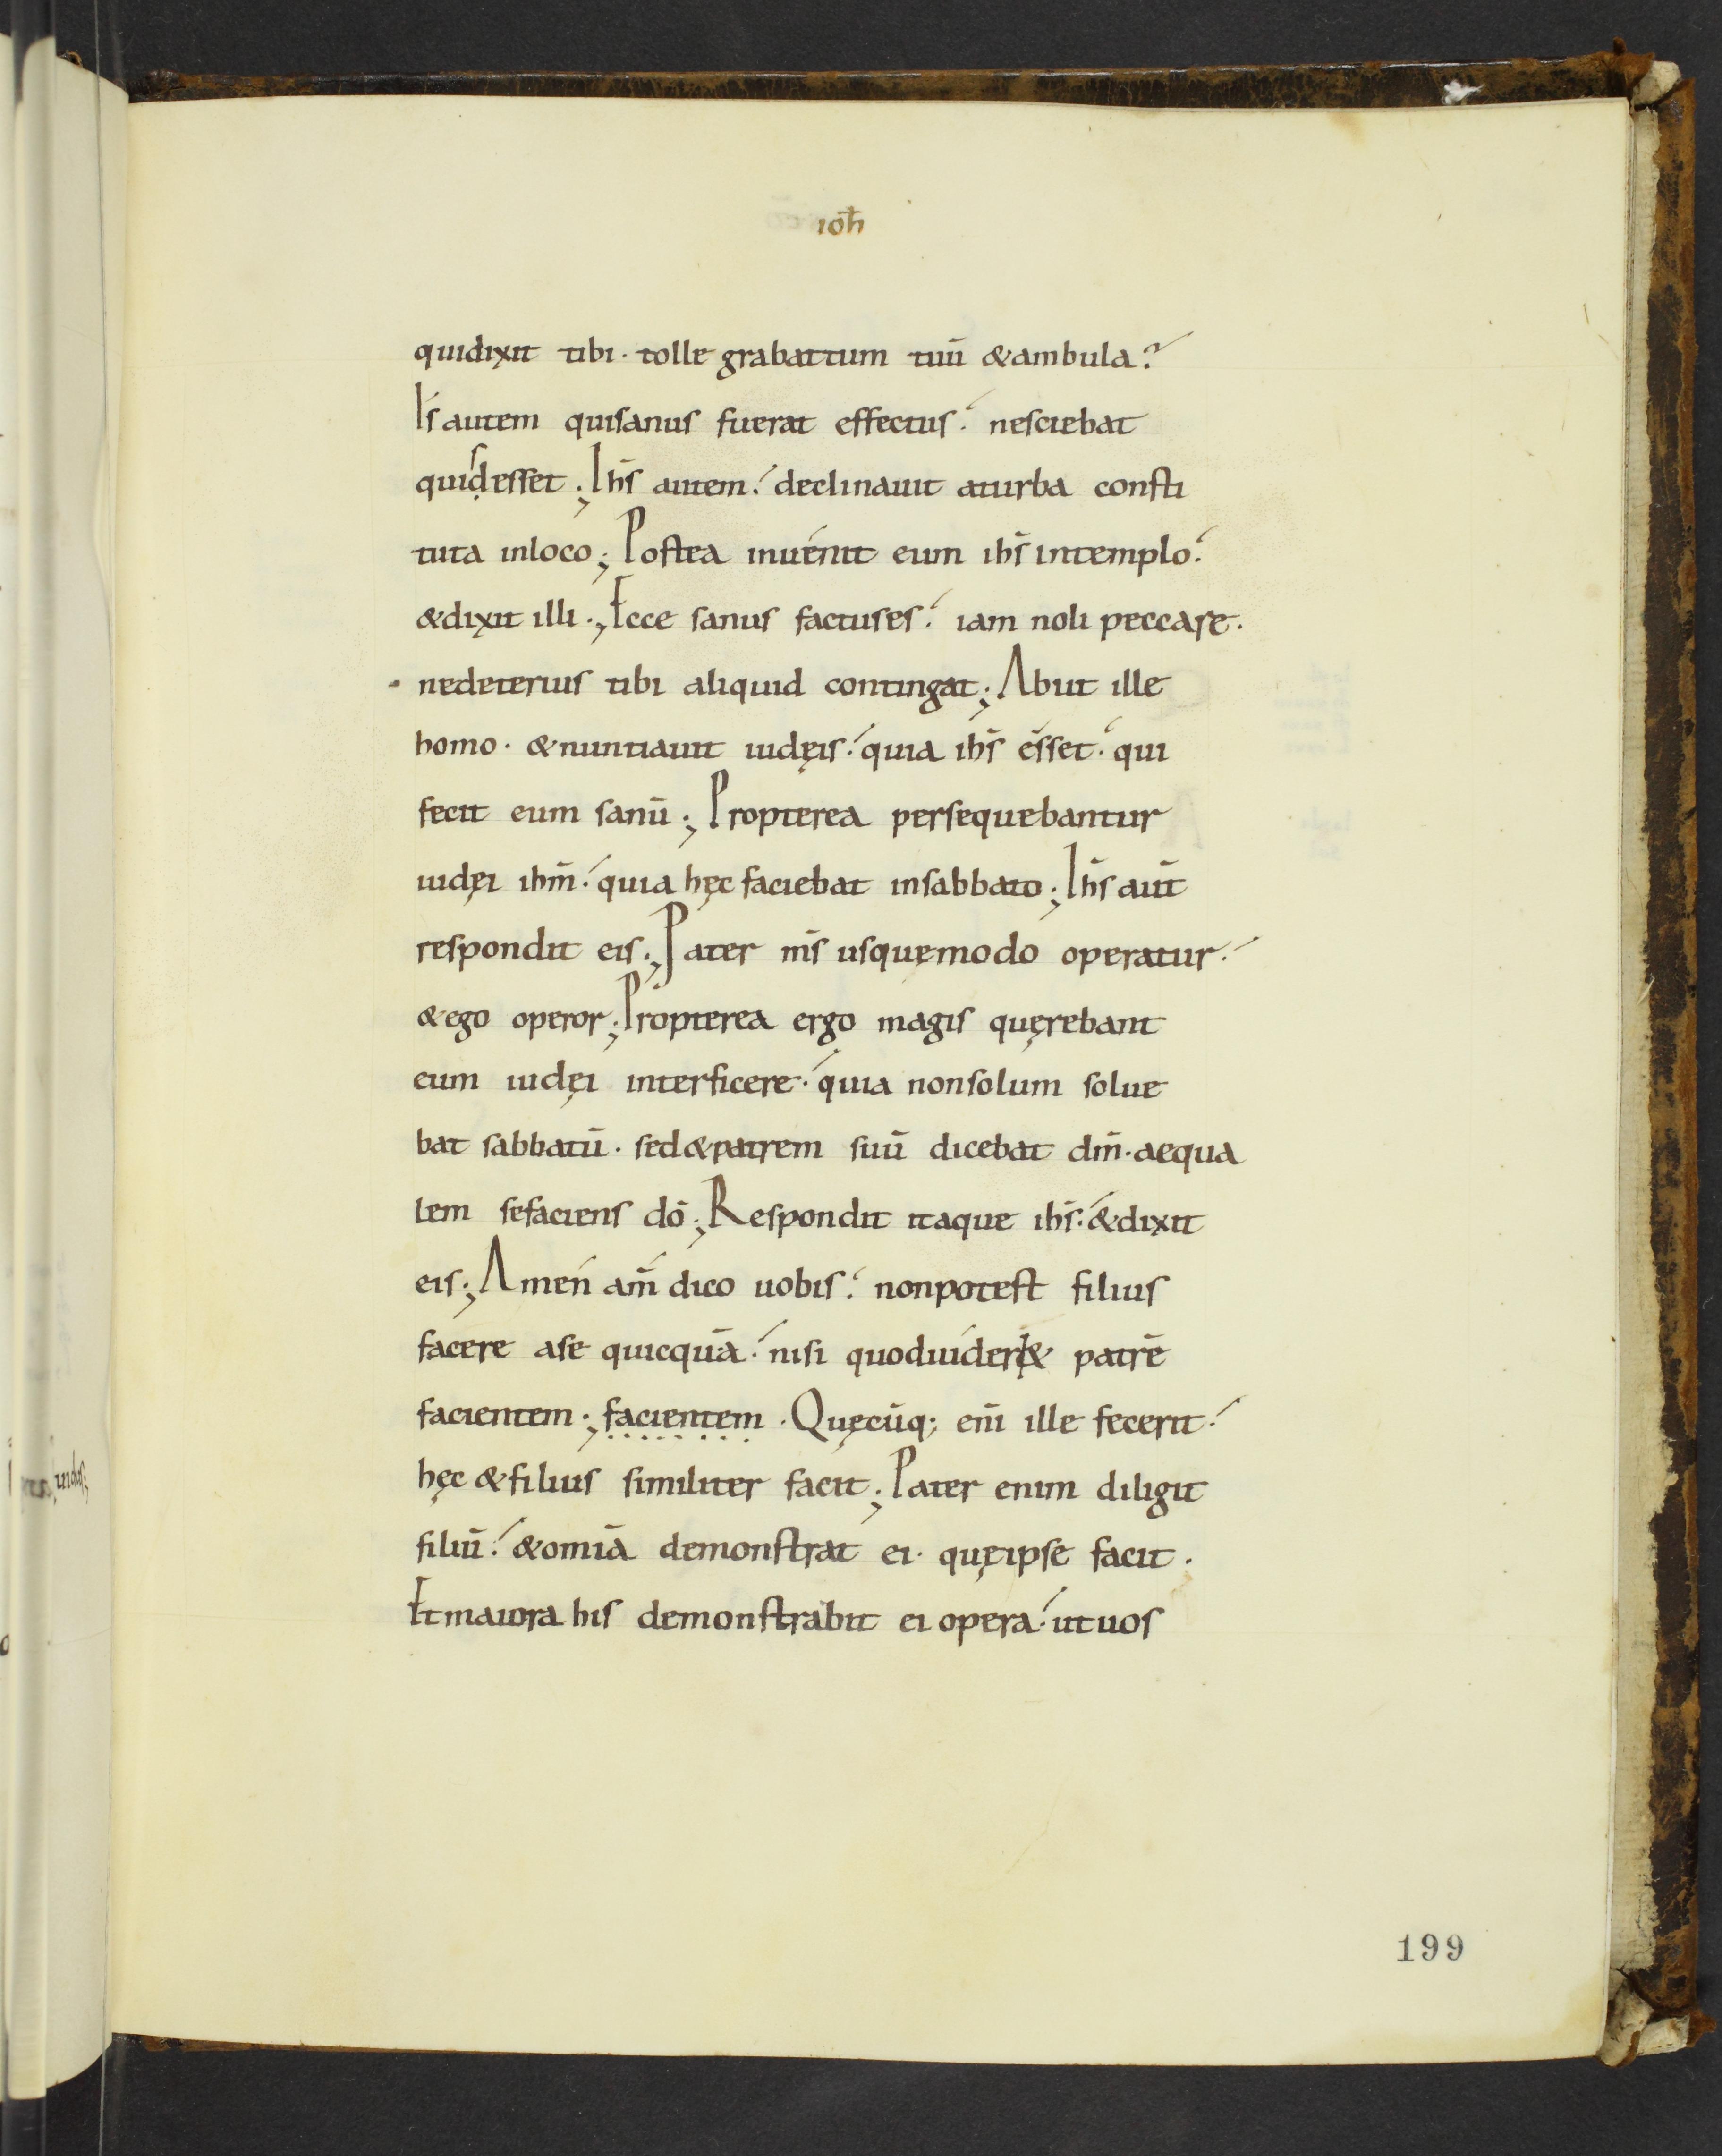 ioħ
quidixit tibi · tolle grabattum tuū &ambula?
Is autem quisanus fuerat effectus: nesciebat
quiḍsesset; Ihs̄ autem: declinauit aturba consti
tuta inloco; Postea inuenit eum ihs̄ intemplo:
&dixit illi; Ecce sanus factuses: iam noli peccare.
nedeterius tibi aliquid contingat; Abiit ille
homo · &nuntiauit iudęis: quia ihs̄ esset: qui
fecit eum sanū; Propterea persequebantur
iudęi ihm̄: quia hęc faciebat insabbato; Ihs̄ aut̄
respondit eis; Pater ms̄ usquemodo operatur:
&ego operor; Propterea ergo magis quęrebant
eum iudęi interficere: quia nonsolum solue
bat sabbatū · sed&patrem suū dicebat dm̄ · aequa
lem sefaciens dō; Respondit itaque ihs̄: &dixit
eis; Amen am̄ dico uobis: nonpotest filius
facere ase quicquā: nisi quoduider& patrē
facientem; facientem · Quęcūq; eni̅ ille fecerit:
hęc &filius similiter facit; Pater enim diligit
filiū: &omīa demonstrat ei · quęipse facit.
Et maiora his demonstrabit ei opera: ut uos
199